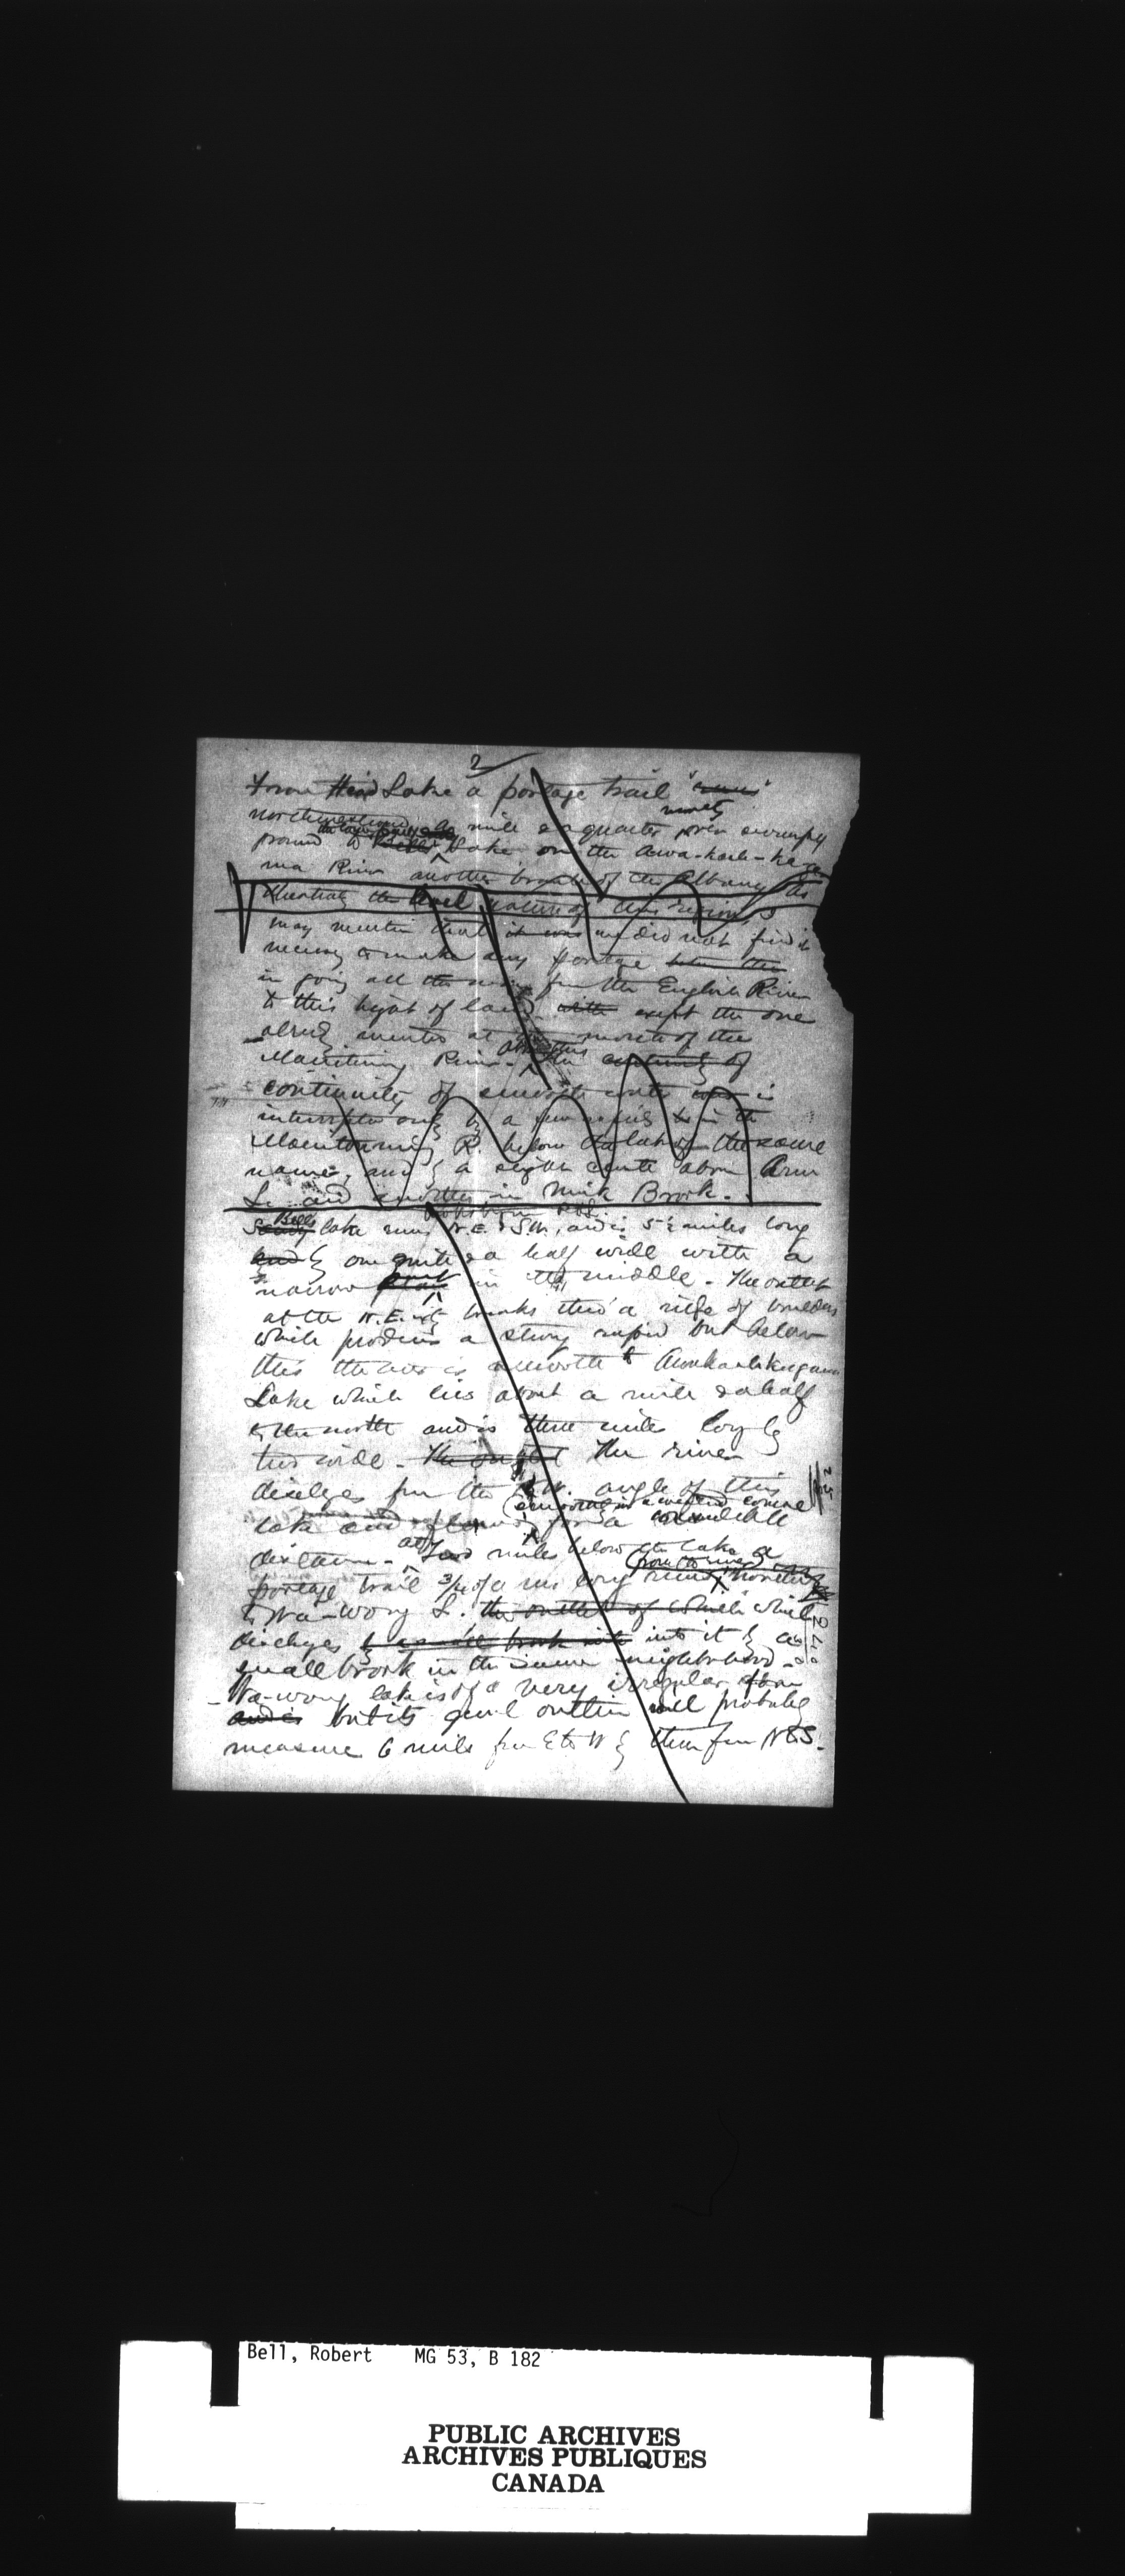 2
From this Lake a portage trail
northwestward a mile & a quarter mostly over swampy
ground to Lake on the Awa-kash-ka-ga
ma River another branch of the Albany As
illustrating the level nature of this region, I
may mention that it was we did not find it
necessary to make any portage between the
in going all the way from the English River
to this height of land with except the one
already mentioned at the mouth of the
River. the continuity of
continuity of smooth water is
interrupted only by a few rapids in the
R. below the lake of the same
name, and by a slight chute above
L. and another in Mink Brook.
Bells lake runs N.E. & S.W., and is 5½ miles long
and by one mile & a half wide with a
narrow part in the middle - The outlet
at the N.E. breaks thro' a ridge of boulders
which produces a strong rapid but below
this the river is smooth to
Lake which lies about a mile & a half
to the north and is three miles long by
two wide. The outlet The river
discharges from the angle of this
lake and flows for a considerable
distance. At Two miles below the lake a
portage trail ¾ of a mile long runs
to Wa-wong L. the outlet of which which
discharges by a small brook into into it by a
small brook in the same neighborhood.
Wa-wong lake is of a very irregular form
and is but its general outline will probably
measure 6 miles from E to W by three from N to S.
Bell, Robert MG 53, B 182
PUBLIC ARCHIVES
ARCHIVES PUBLIQUES
CANADA